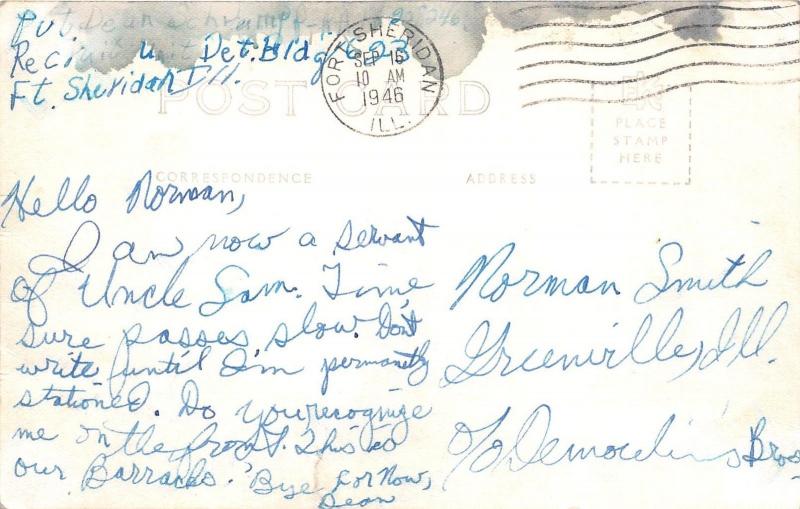 Pvt. Dean
Rec. Unit Det. Bldg 603
Ft. Sheridan Ill.
FORT SHERIDAN
SEP 15
10 AM
1946
ILL.
POST CARD
PLACE
STAMP
HERE
CORRESPONDENCE
ADDRESS
Hello Norman,
I am now a servant
of Uncle Sam. Time
sure passes slow. Don't
write until I'm permanetly
stationed. Do you recognize
me on the front. This is
our Barracks. 'Bye for Now,
Dean
Norman Smith
Greenville, Ill.
c/o Demoulin's Bros